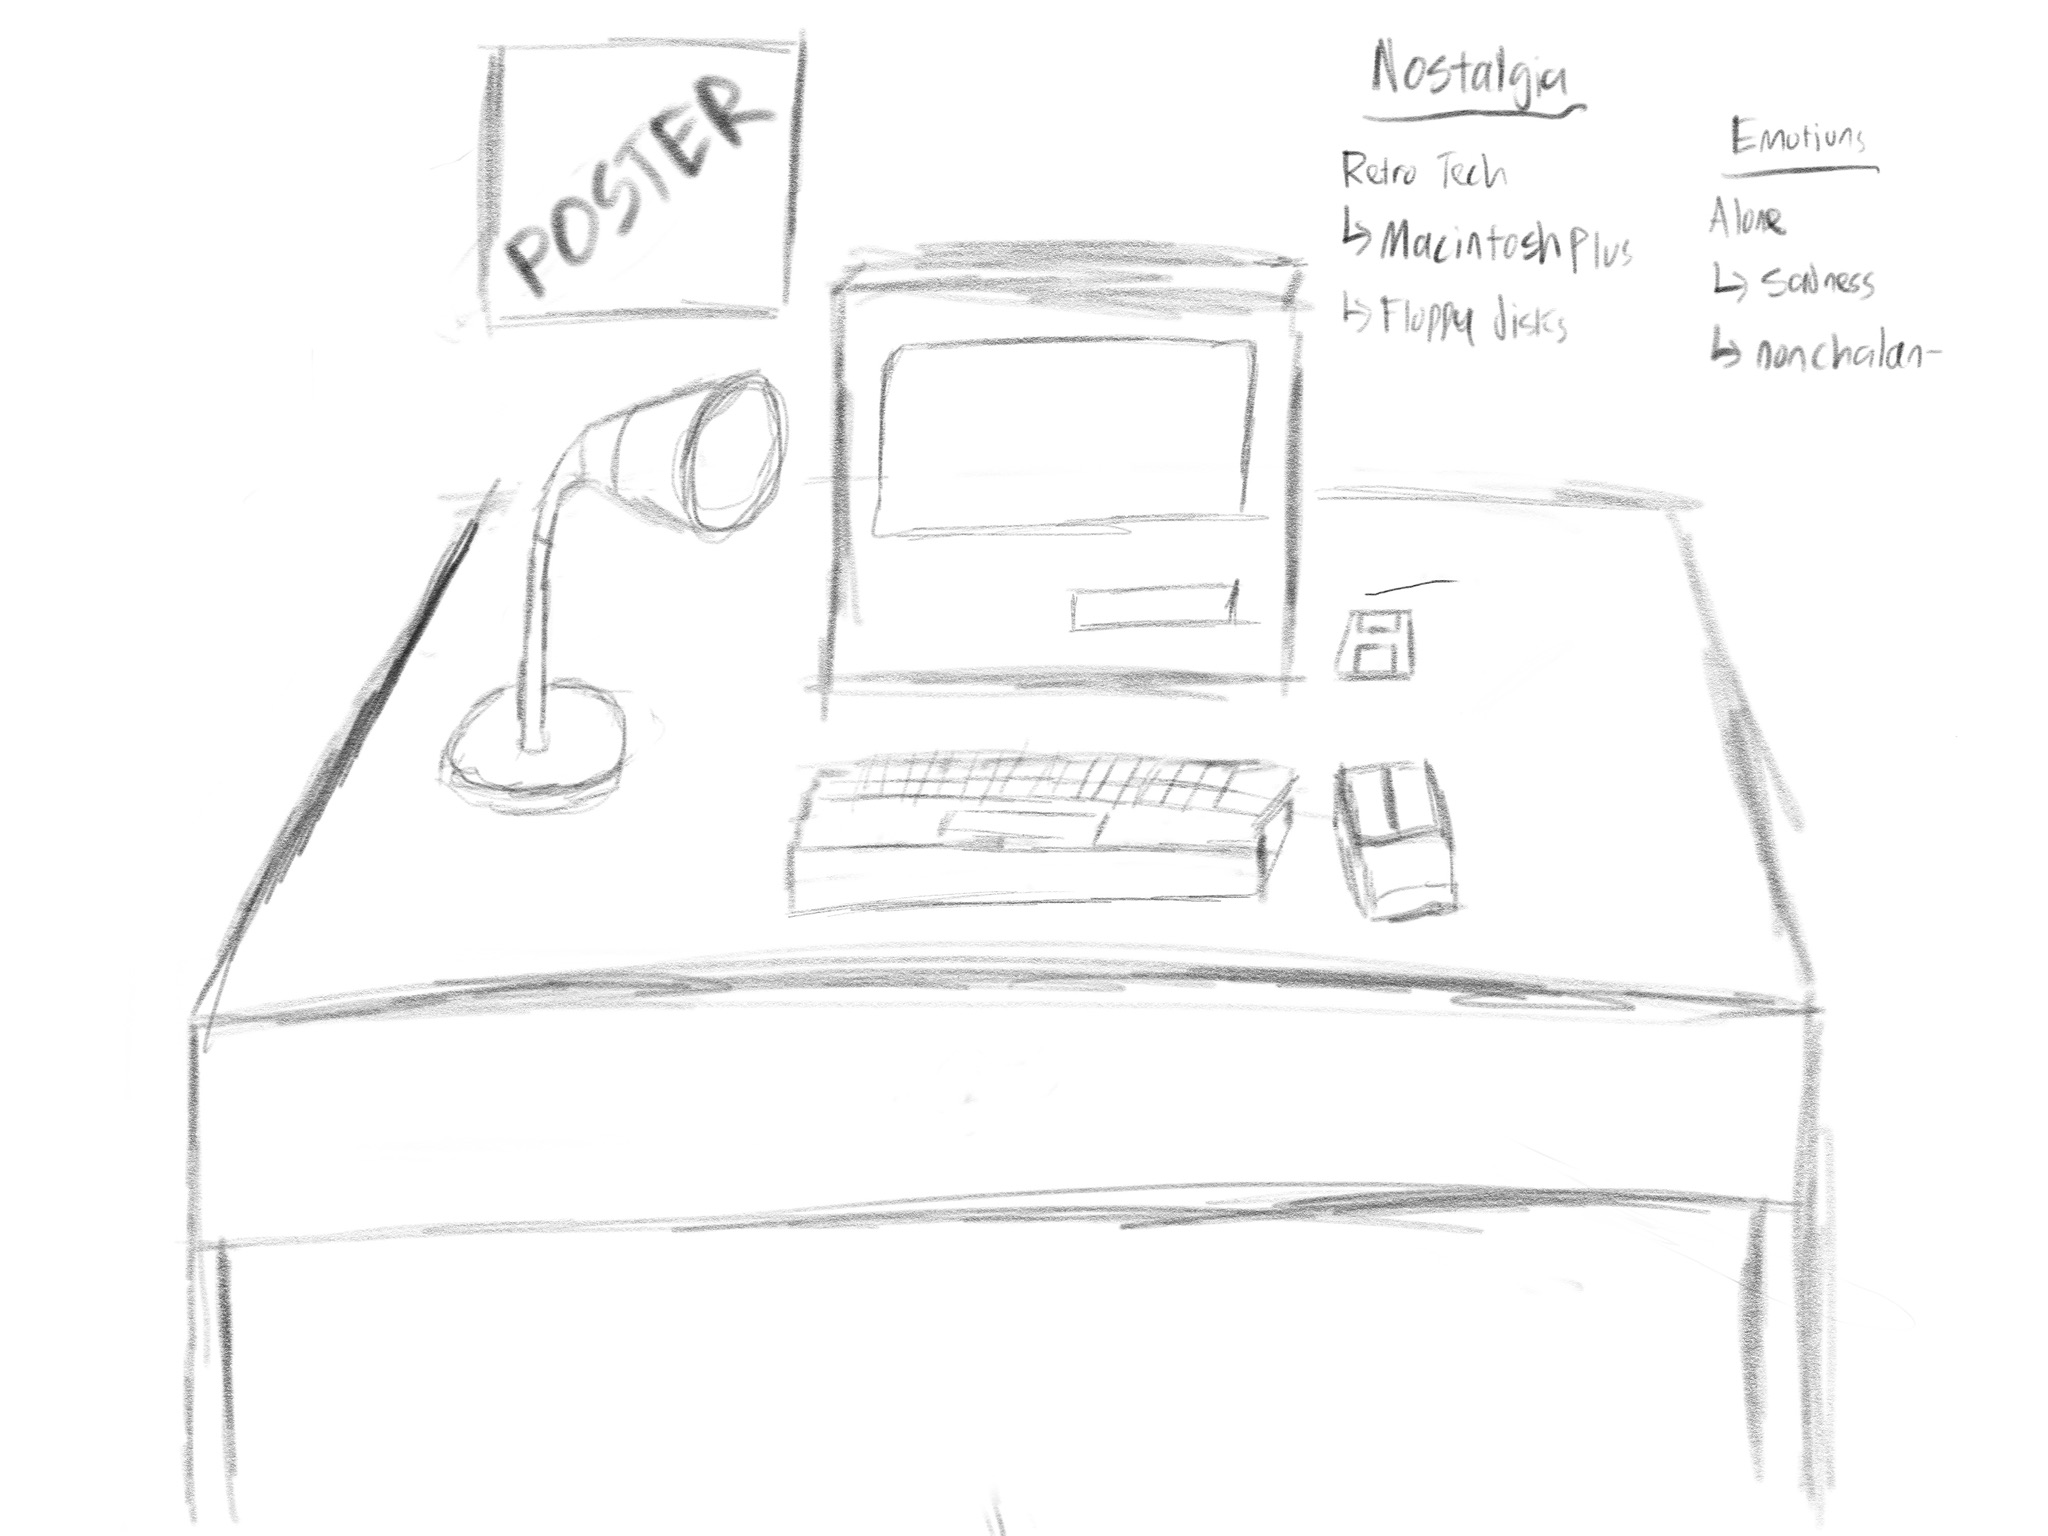 POSTER
Nostalgia
Retro Tech
↳ Macintosh Plus
↳ Floppy disks
Emotions
Alone
↳ Sadness
↳ nonchalan-